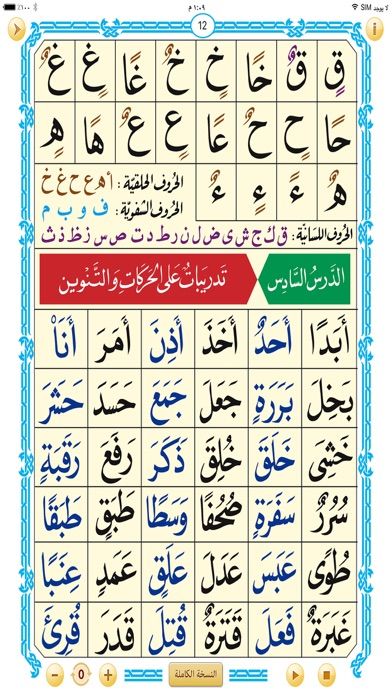 لا يوجد SIM ١:٠٩ م ٪١٠٠
12
قٍ قٌ خًا خٍ خٌ غًا غٍ غٌ
حًا حٍ حٌ عًا عٍ عٌ هًا هٍ
هٌ ءً ءٍ ءٌ
الحروف الحلقيّة : أ هـ ع ح غ خ
الحروف الشفويّة : ف و ب م
الحروف اللسانيّة : ق ك ج ش ي ض ل ن ر ط د ت ص س ز ظ ذ ث
الدَّرسُ السَّادِس تَدرِيبَاتٌ عَلَى الحَرَكَاتِ وَالتَّنْوِين
أَبَدًا أَحَدٌ أَخَذَ أَذِنَ أَمَرَ أَنَاْ
بَخِلَ بَرَرَةٍ جَعَلَ جَمَعَ حَسَدَ حَشَرَ
خَشِيَ خَلَقَ خُلِقَ ذَكَرَ رَفَعَ رَقَبَةٍ
سُرُرٌ سَفَرَةٍ صُحُفًا وَسَطًا طَبَقٍ طَبَقًا
طُوًى عَبَسَ عَدَلَ عَلَقٍ عَمَدٍ عِنَبًا
غَبَرَةٌ فَعَلَ قَتَرَةٌ قُتِلَ قَدَرَ قُرِئَ
النسخة الكاملة 0